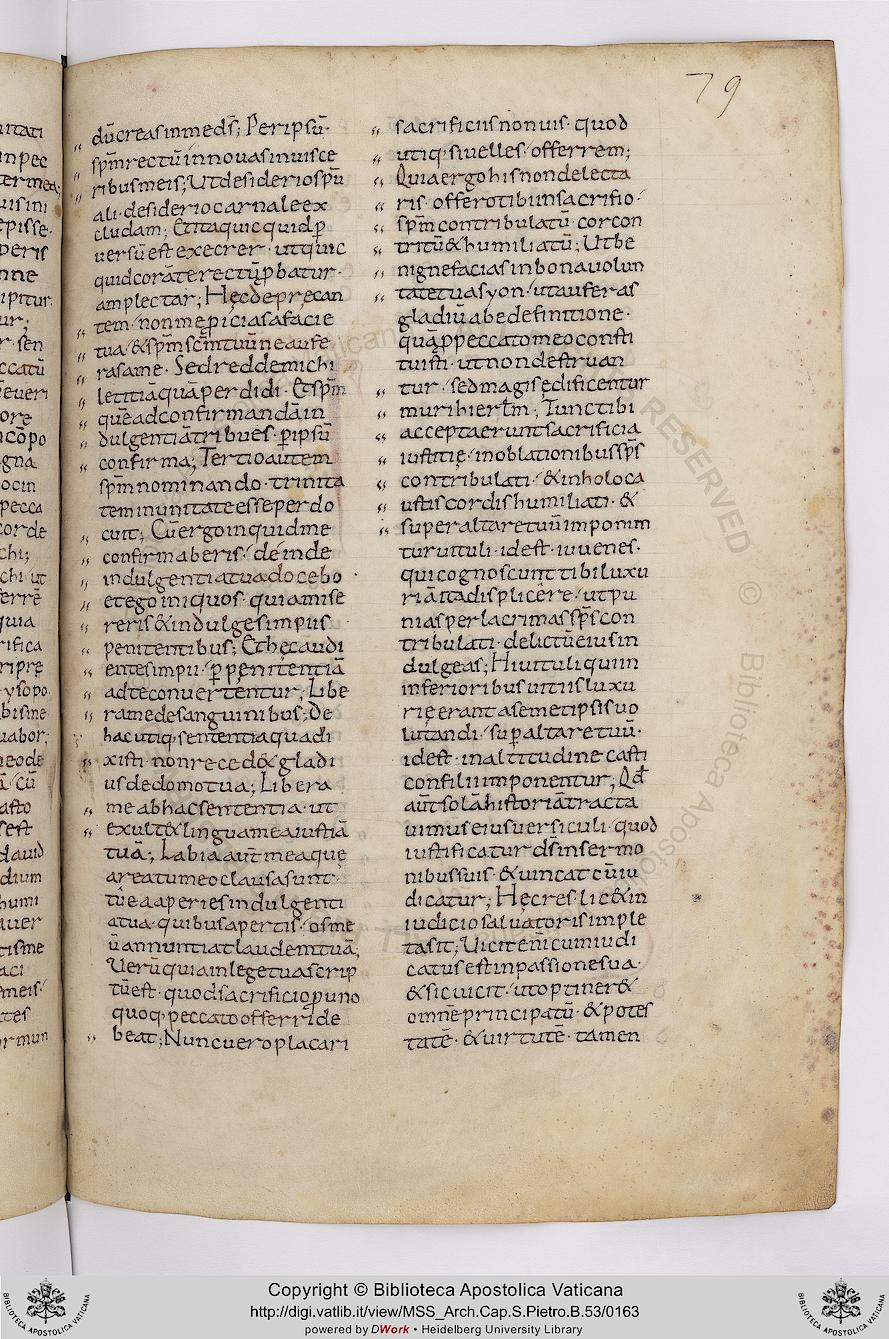 79
dũ creas inme ds̃; Per ipsũ·
spm̃ rectũ innouas inuisce
ribus meis; Ut desiderio spũ
ali· desiderio carnale ex
cludam; Et ita quicquid p̱
uersũ est execrer· ut quic
quid corã te rectũ ꝓbatur·
amplectar; Hęc deprecan
tem· non me ꝓicias a facie
tua· & spm̃ sc̃m tuũ ne aufe
ras a me· Sed redde michi
letitiã quã perdidi· Et spm̃
quẽ ad confirmandã in
dulgentiã tribues· ꝑ ipsũ
confirma; Tertio autem
spm̃ nominando· trinita
tem in unitate esse perdo
cuit; Cũ ergo inquid me
confirmaberis· deinde
indulgentia tua docebo·
et ego iniquos· quia mise
reris & indulges impiis
penitentibus; Et hęc audi
entes impii· ꝑ penitentiã
ad te conuertentur; Libe
ra me de sanguinibus; De
hac utiq· sententia qua di
xisti· non recedet gladi
us de domo tua; Libera
me ab hac sententia· ut
exultet lingua mea iustiã
tuã; Labia aut̃ mea que
a reatu meo clausa sunt·
tũ ea aperies indulgenti
a tua· quibus apertis· os me
ũ annuntiat laudem tuã;
Verũ quia in lege tua scrip
tũ est· quod sacrificio ꝓ uno
quoq· peccato offerri de
beat; Nunc uero placari
sacrificiis non uis· quod
utiq· si uelles· offerrem;
Quia ergo his non delecta
ris· offero tibi in sacrifio·
spm̃ contribulatũ· cor con
tritũ & humiliatũ; Ut be
nigne facias in bona uolun
tate tua syon· ut auferas
gladiũ a bedefinitione·
quã ꝓ peccato meo consti
tuisti· ut non destruan
tur· sed magis ędificentur
muri hierl̃m; Tunc tibi
accepta erunt sacrificia
iustitię· in oblationibus sp̃s
contribulati· & in holoca
ustis cordis humiliati· &
super altare tuũ impomm
tur uituli· id est· iuuenes·
qui cognoscunt tibi luxu
riã ita displicêre· ut pu
nias per lacrimas sp̃s con
tribulati· delictũ eius in
dulgeas; Hi uituli qui in
inferioribus uitiis luxu
rię erant a semetipsis uo
lutandi· suꝑ altare tuũ·
id est· in altitudine casti
consilii imponentur; Qđ
aut̃ solã historiã tracta
uimus eius uersiculi· quod
iustificatur ds̃ in sermo
nibus suis· & uincat cũ iu
dicatur; Hęc res licet in
iudicio saluatoris imple
ta sit; Uicit em̃ cum iudi
catus est in passione sua·
& sic uicit· ut optineret
omne principatũ· & potes
tatẽ· & uirtutẽ· tamen
RESERVED © Biblioteca Aposto
Copyright © Biblioteca Apostolica Vaticana
http://digi.vatlib.it/view/MSS_Arch.Cap.S.Pietro.B.53/0163
powered by DWork • Heidelberg University Library
BIBLIOTECA APOSTOLICA VATICANA
BIBLIOTECA APOSTOLICA VATICANA